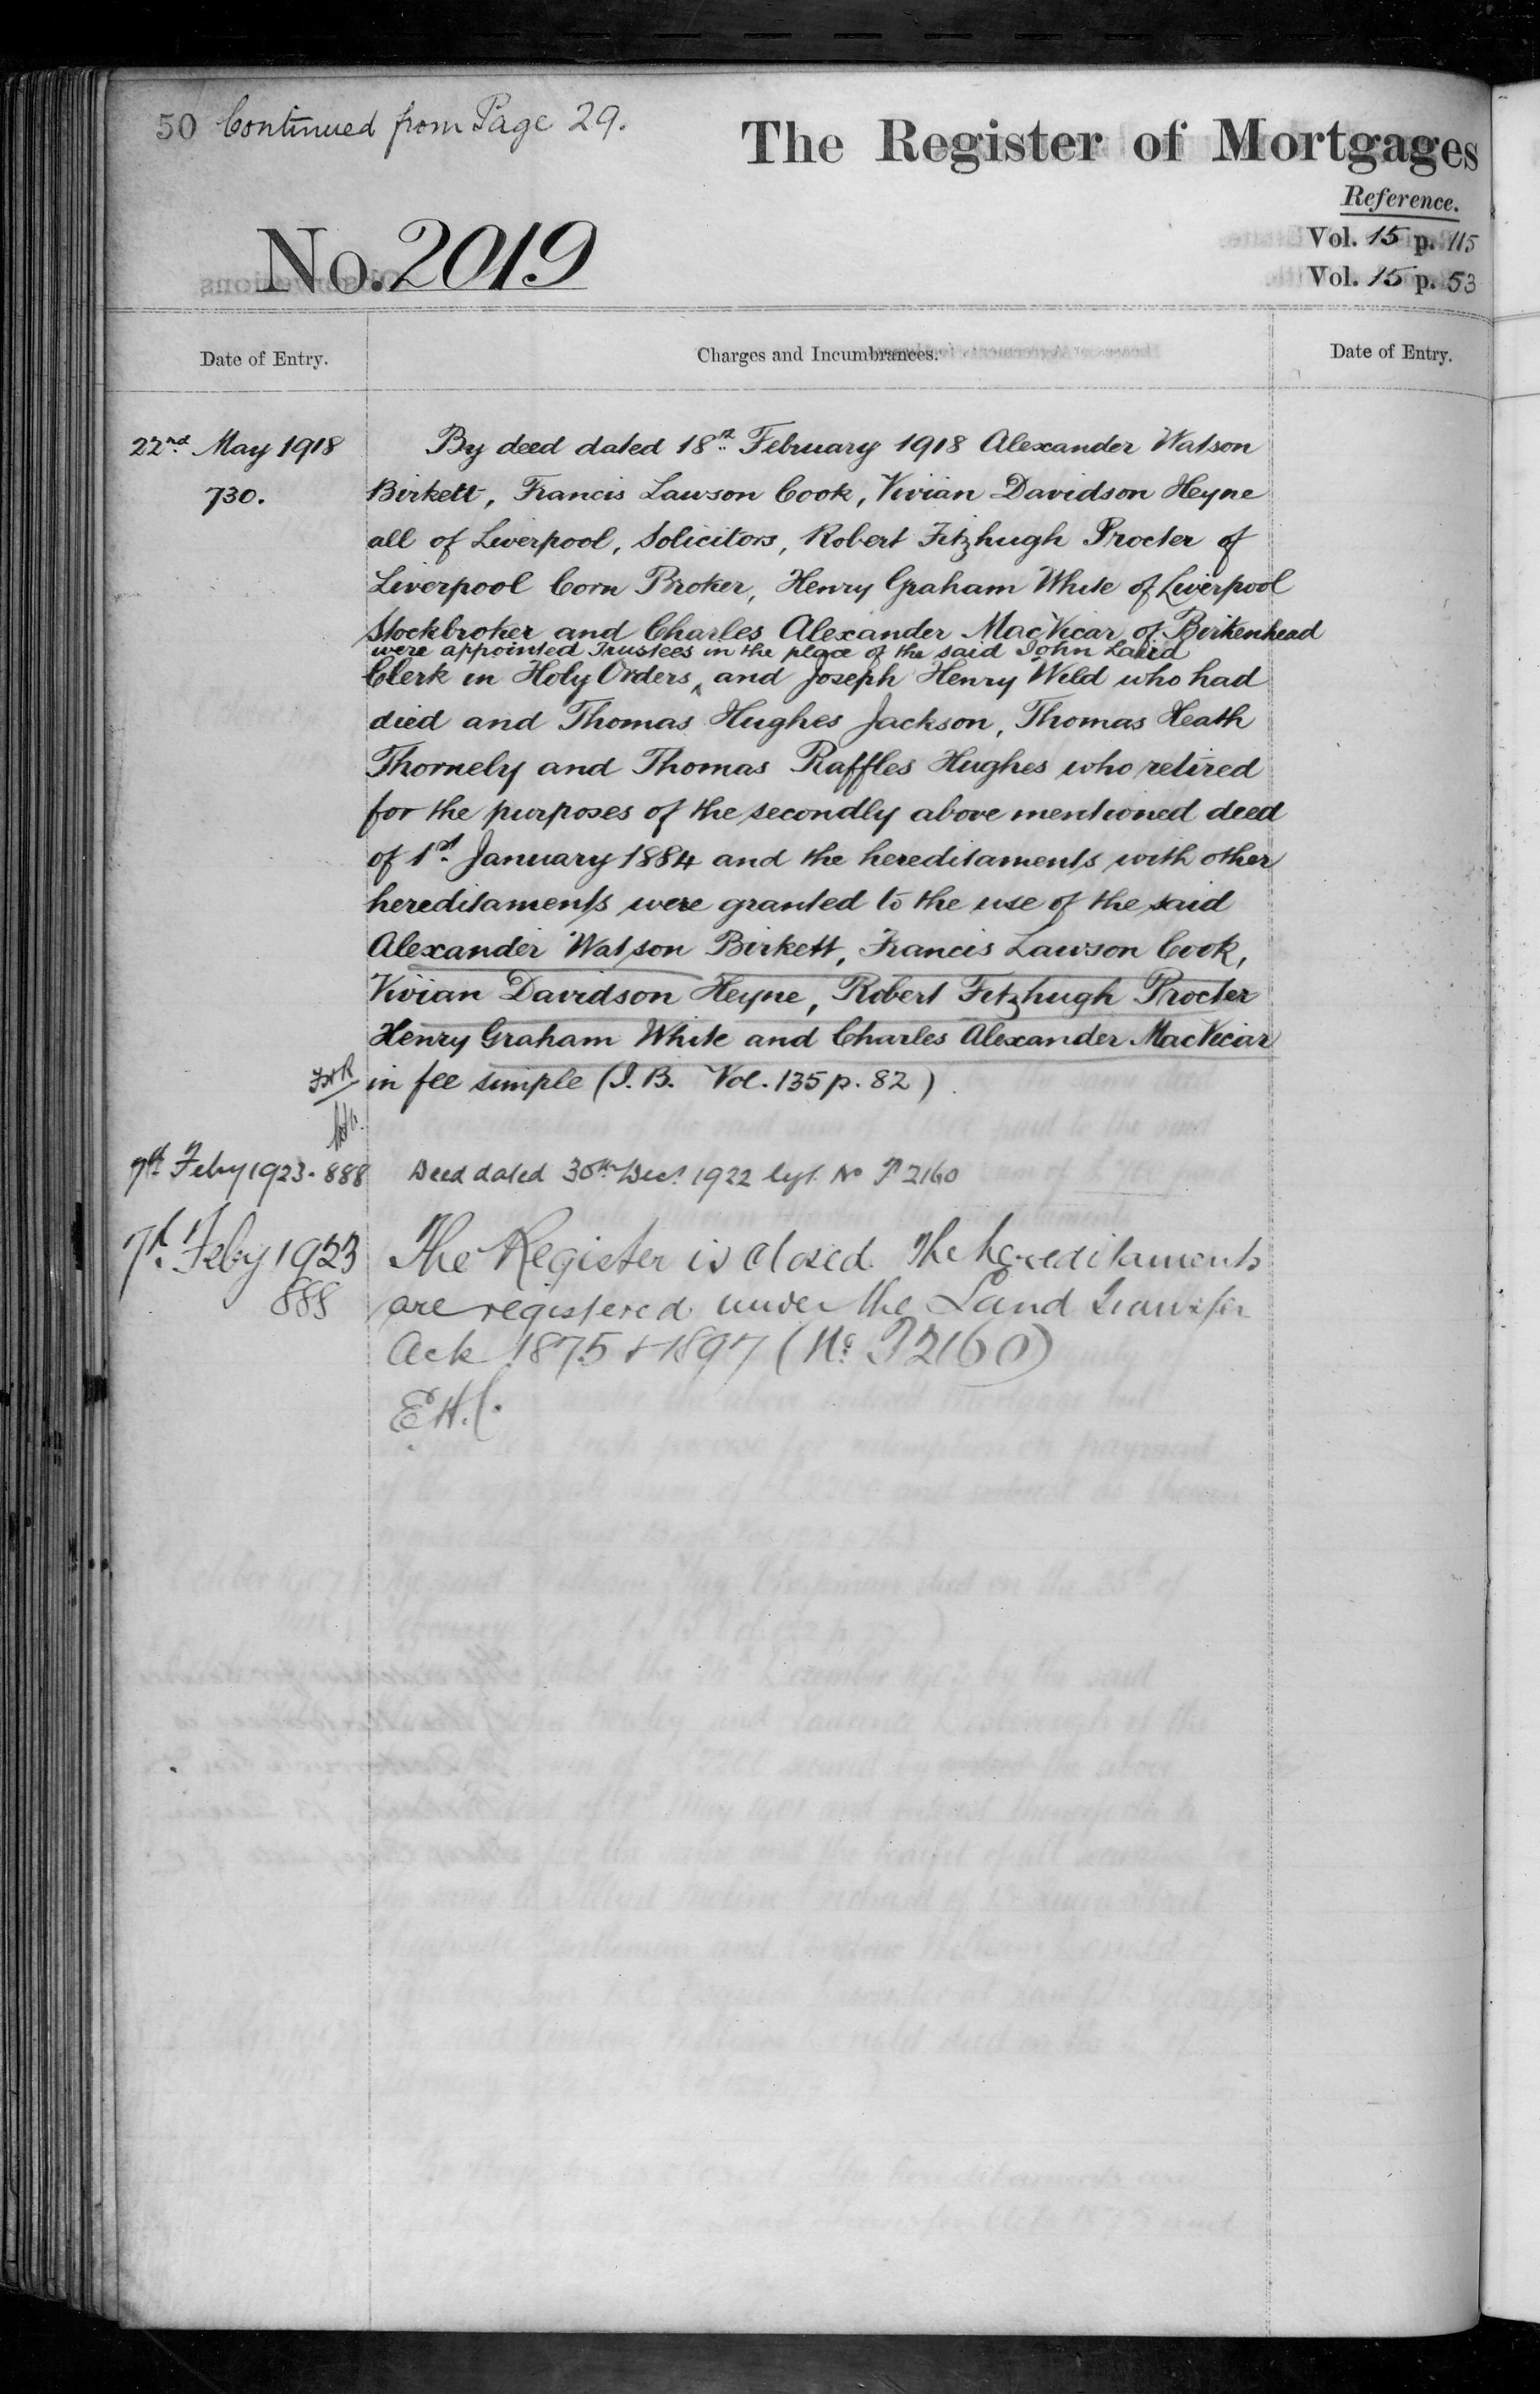 50 Continued from Page 29.
The Register of Mortgages
Reference.
Vol. 15 p. 115
Vol. 15 p. 53
No. 2019
Date of Entry.
Charges and Incumbrances.
Date of Entry.
22nd May 1918
730.
By deed dated 18th February 1918 Alexander Watson
Birkett, Francis Lawson Cook, Vivian Davidson Heyne
all of Liverpool, Solicitors, Robert Fitzhugh Procter of
Liverpool Corn Broker, Henry Graham White of Liverpool
Stockbroker and Charles Alexander MacVicar of Birkenhead
were appointed Trustees in the place of the said John Laird
Clerk in Holy Orders ‸ and Joseph Henry Wild who had
died and Thomas Hughes Jackson, Thomas Heath
Thornely and Thomas Raffles Hughes who retired
for the purposes of the secondly above mentioned deed
of 1st January 1884 and the hereditaments with other
hereditaments were granted to the use of the said
Alexander Watson Birkett, Francis Lawson Cook,
Vivian Davidson Heyne, Robert Fitzhugh Procter
Henry Graham White and Charles Alexander MacVicar
in fee simple (I. B. Vol. 135 p. 82)
7th Feby 1923. 888
Deed dated 30th Decr 1922 No P 2160
7th Feby 1923
888
The Register is closed. The hereditaments
are registered under the Land Transfer
Acts 1875 & 1897 (No. P 2160)